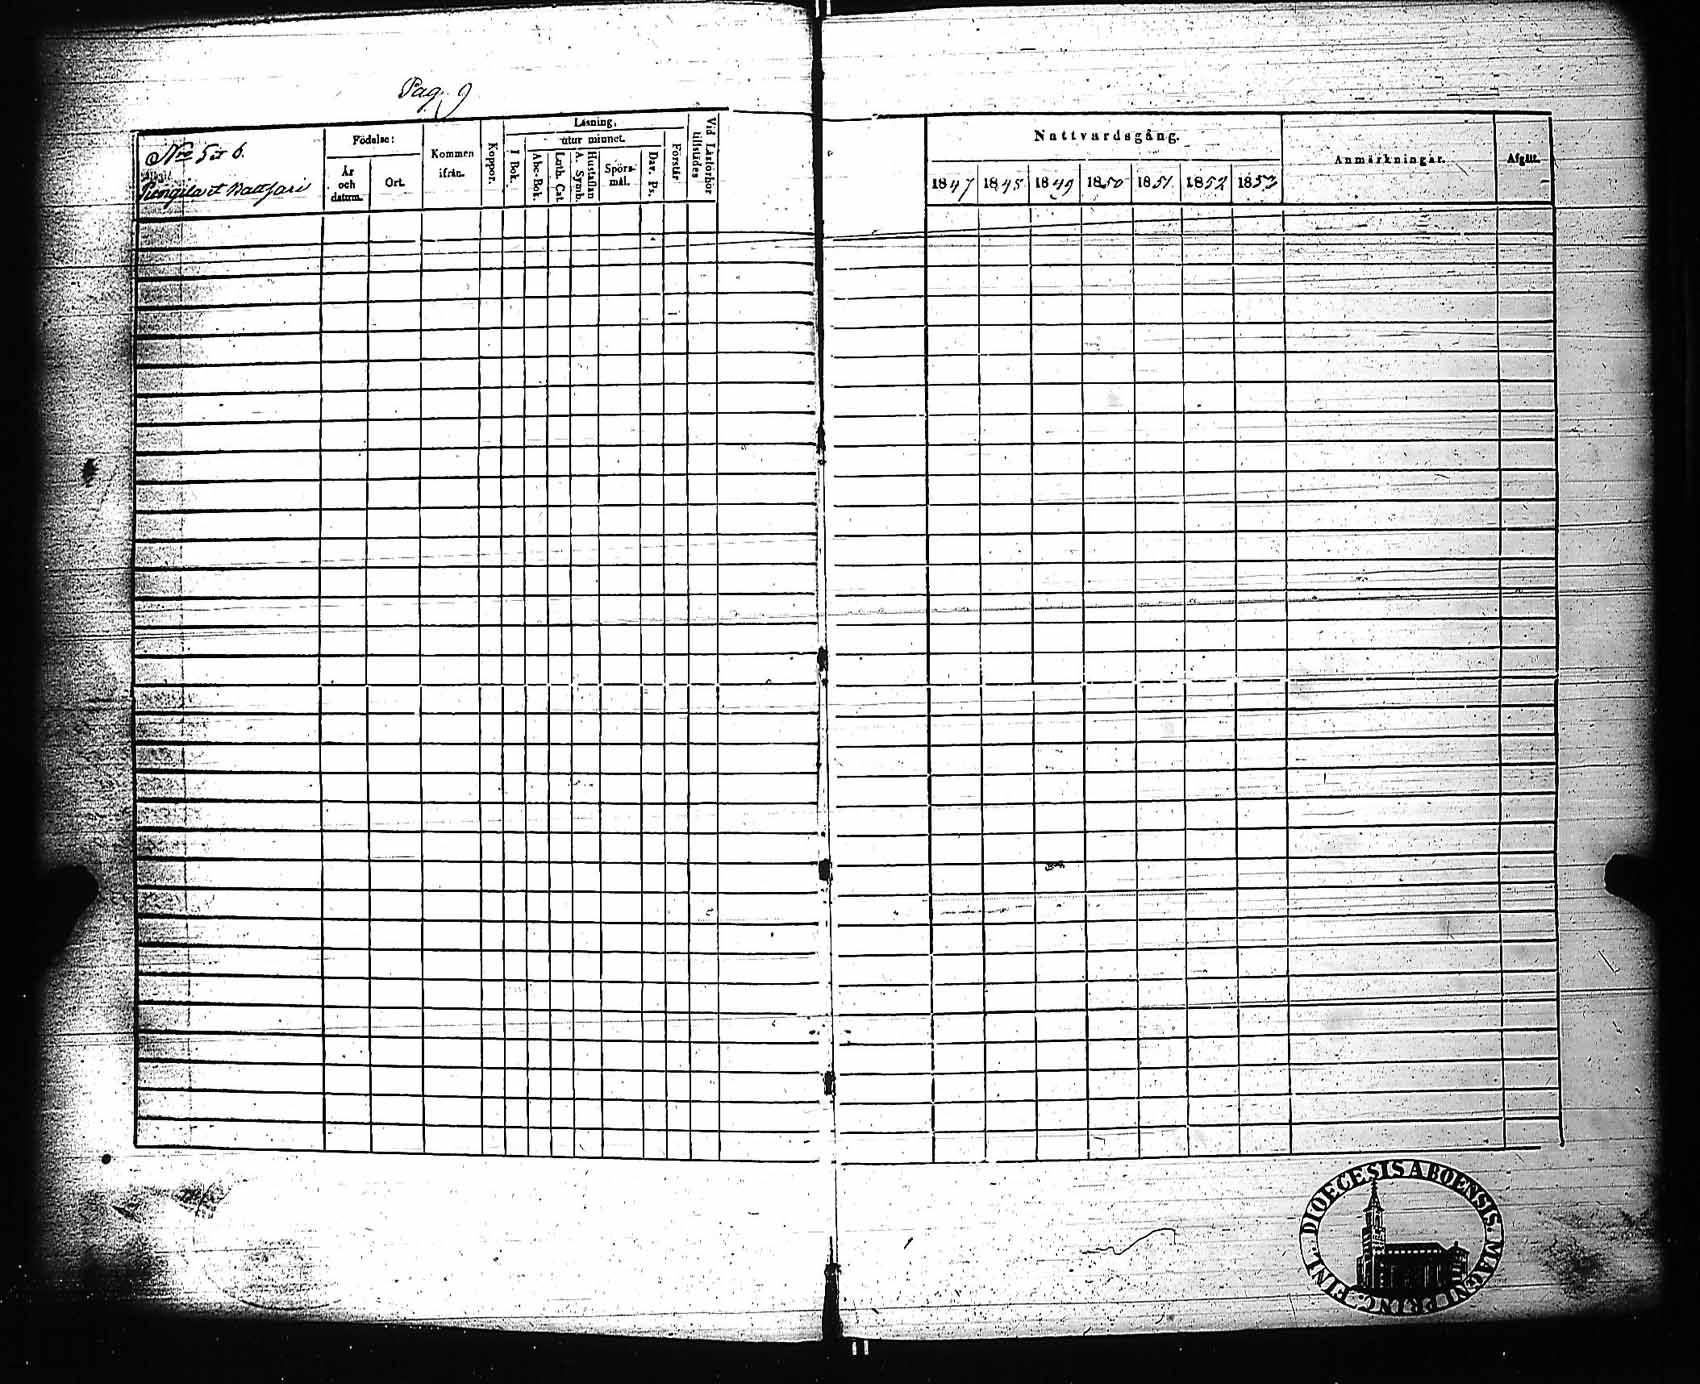 Pag. 9
Nro 5 et 6.
et Nattfari
Födelse:
År
och
datum.
Ort.
Kommen
ifrån.
Koppor.
Läsning,
utur minnet.
I Bok.
Abc-Bok.
Luth. Cat
Hustaflan
A. Symb.
Spörs-
mål.
Dav. Ps.
Förstår
Vid Läsförhör
tillstädes
Nattvardsgång.
1847 1848 1849 1850 1851 1852 1853
Anmärkningar.
Afgått.
DIOECESIS ABOENSIS. MAGNI PRINC. FINL.